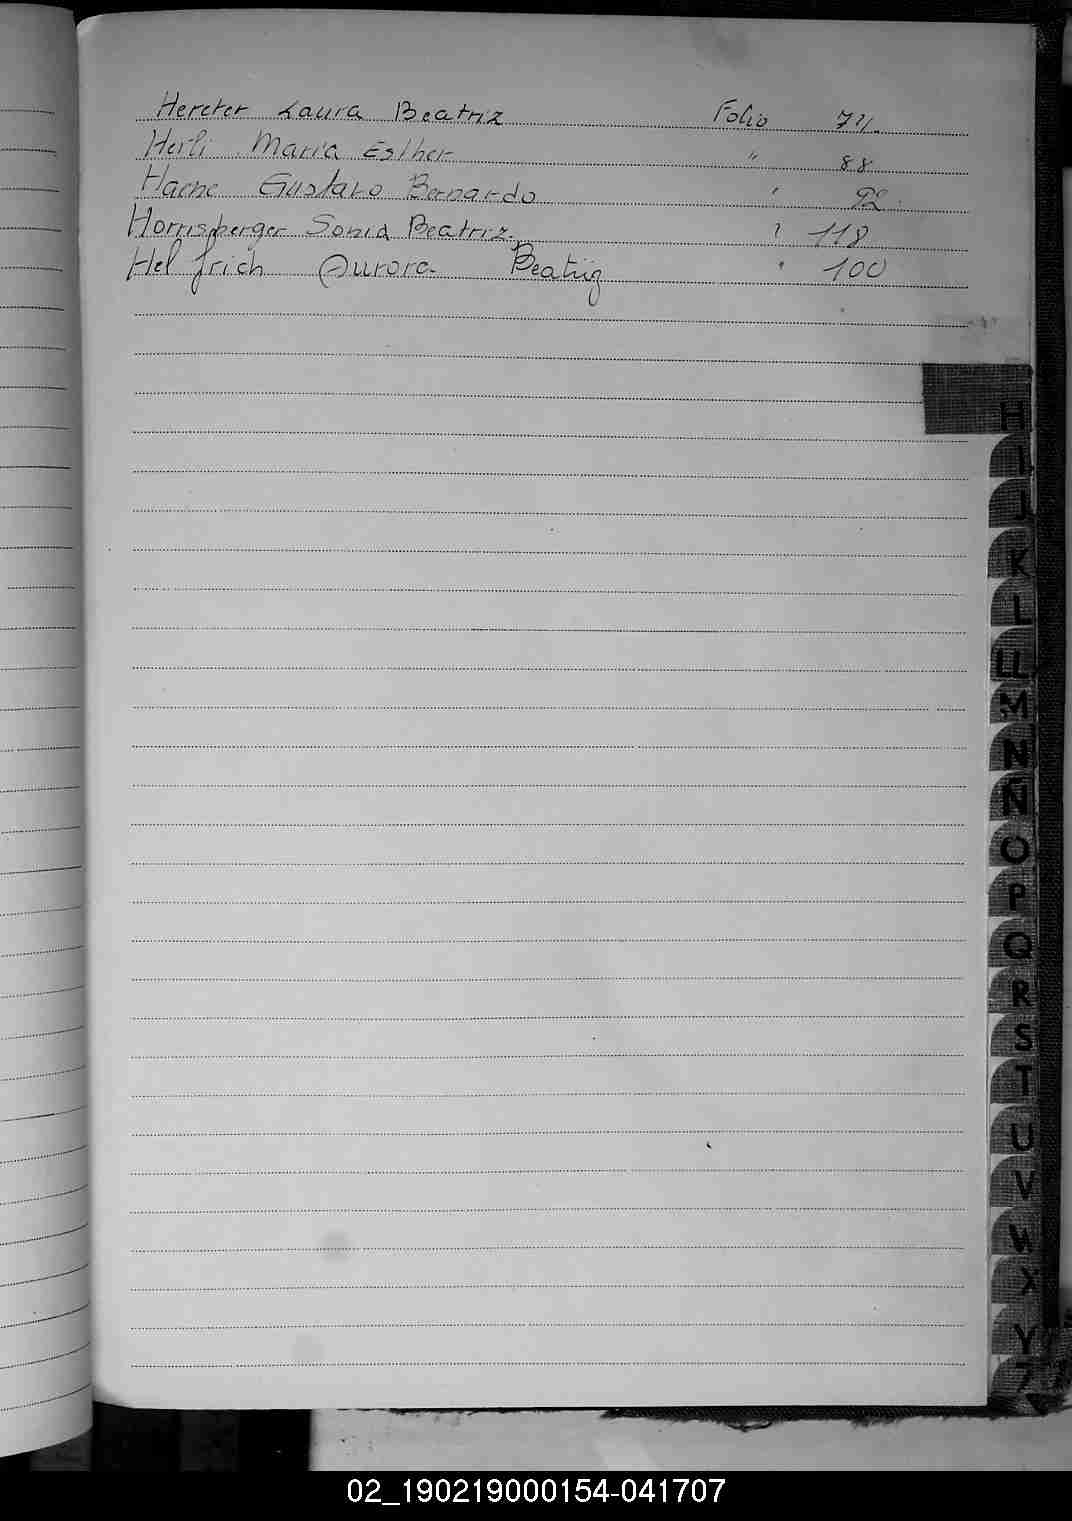 Hereter Laura Beatriz Folio 74.
Herli Maria Esther " 88
Haene Gustavo Bernardo " 92.
Horrisberger Sonia Beatriz. " 118
Helfrich Aurora Beatriz " 100
H
I
J
K
L
LL
M
N
Ñ
O
P
Q
R
S
T
U
V
W
X
Y
Z
02_190219000154-041707